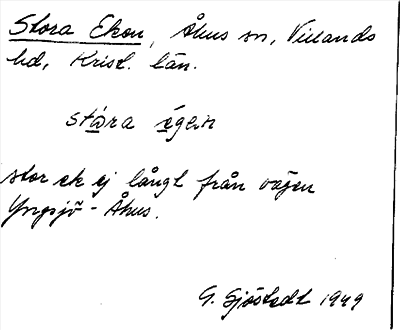 Stora Eken, Åhus sn, Villands
hd, Krist. län.
stora egen
stor ek ej långt från vägen
Yngsjö - Åhus.
G. Sjöstedt 1949